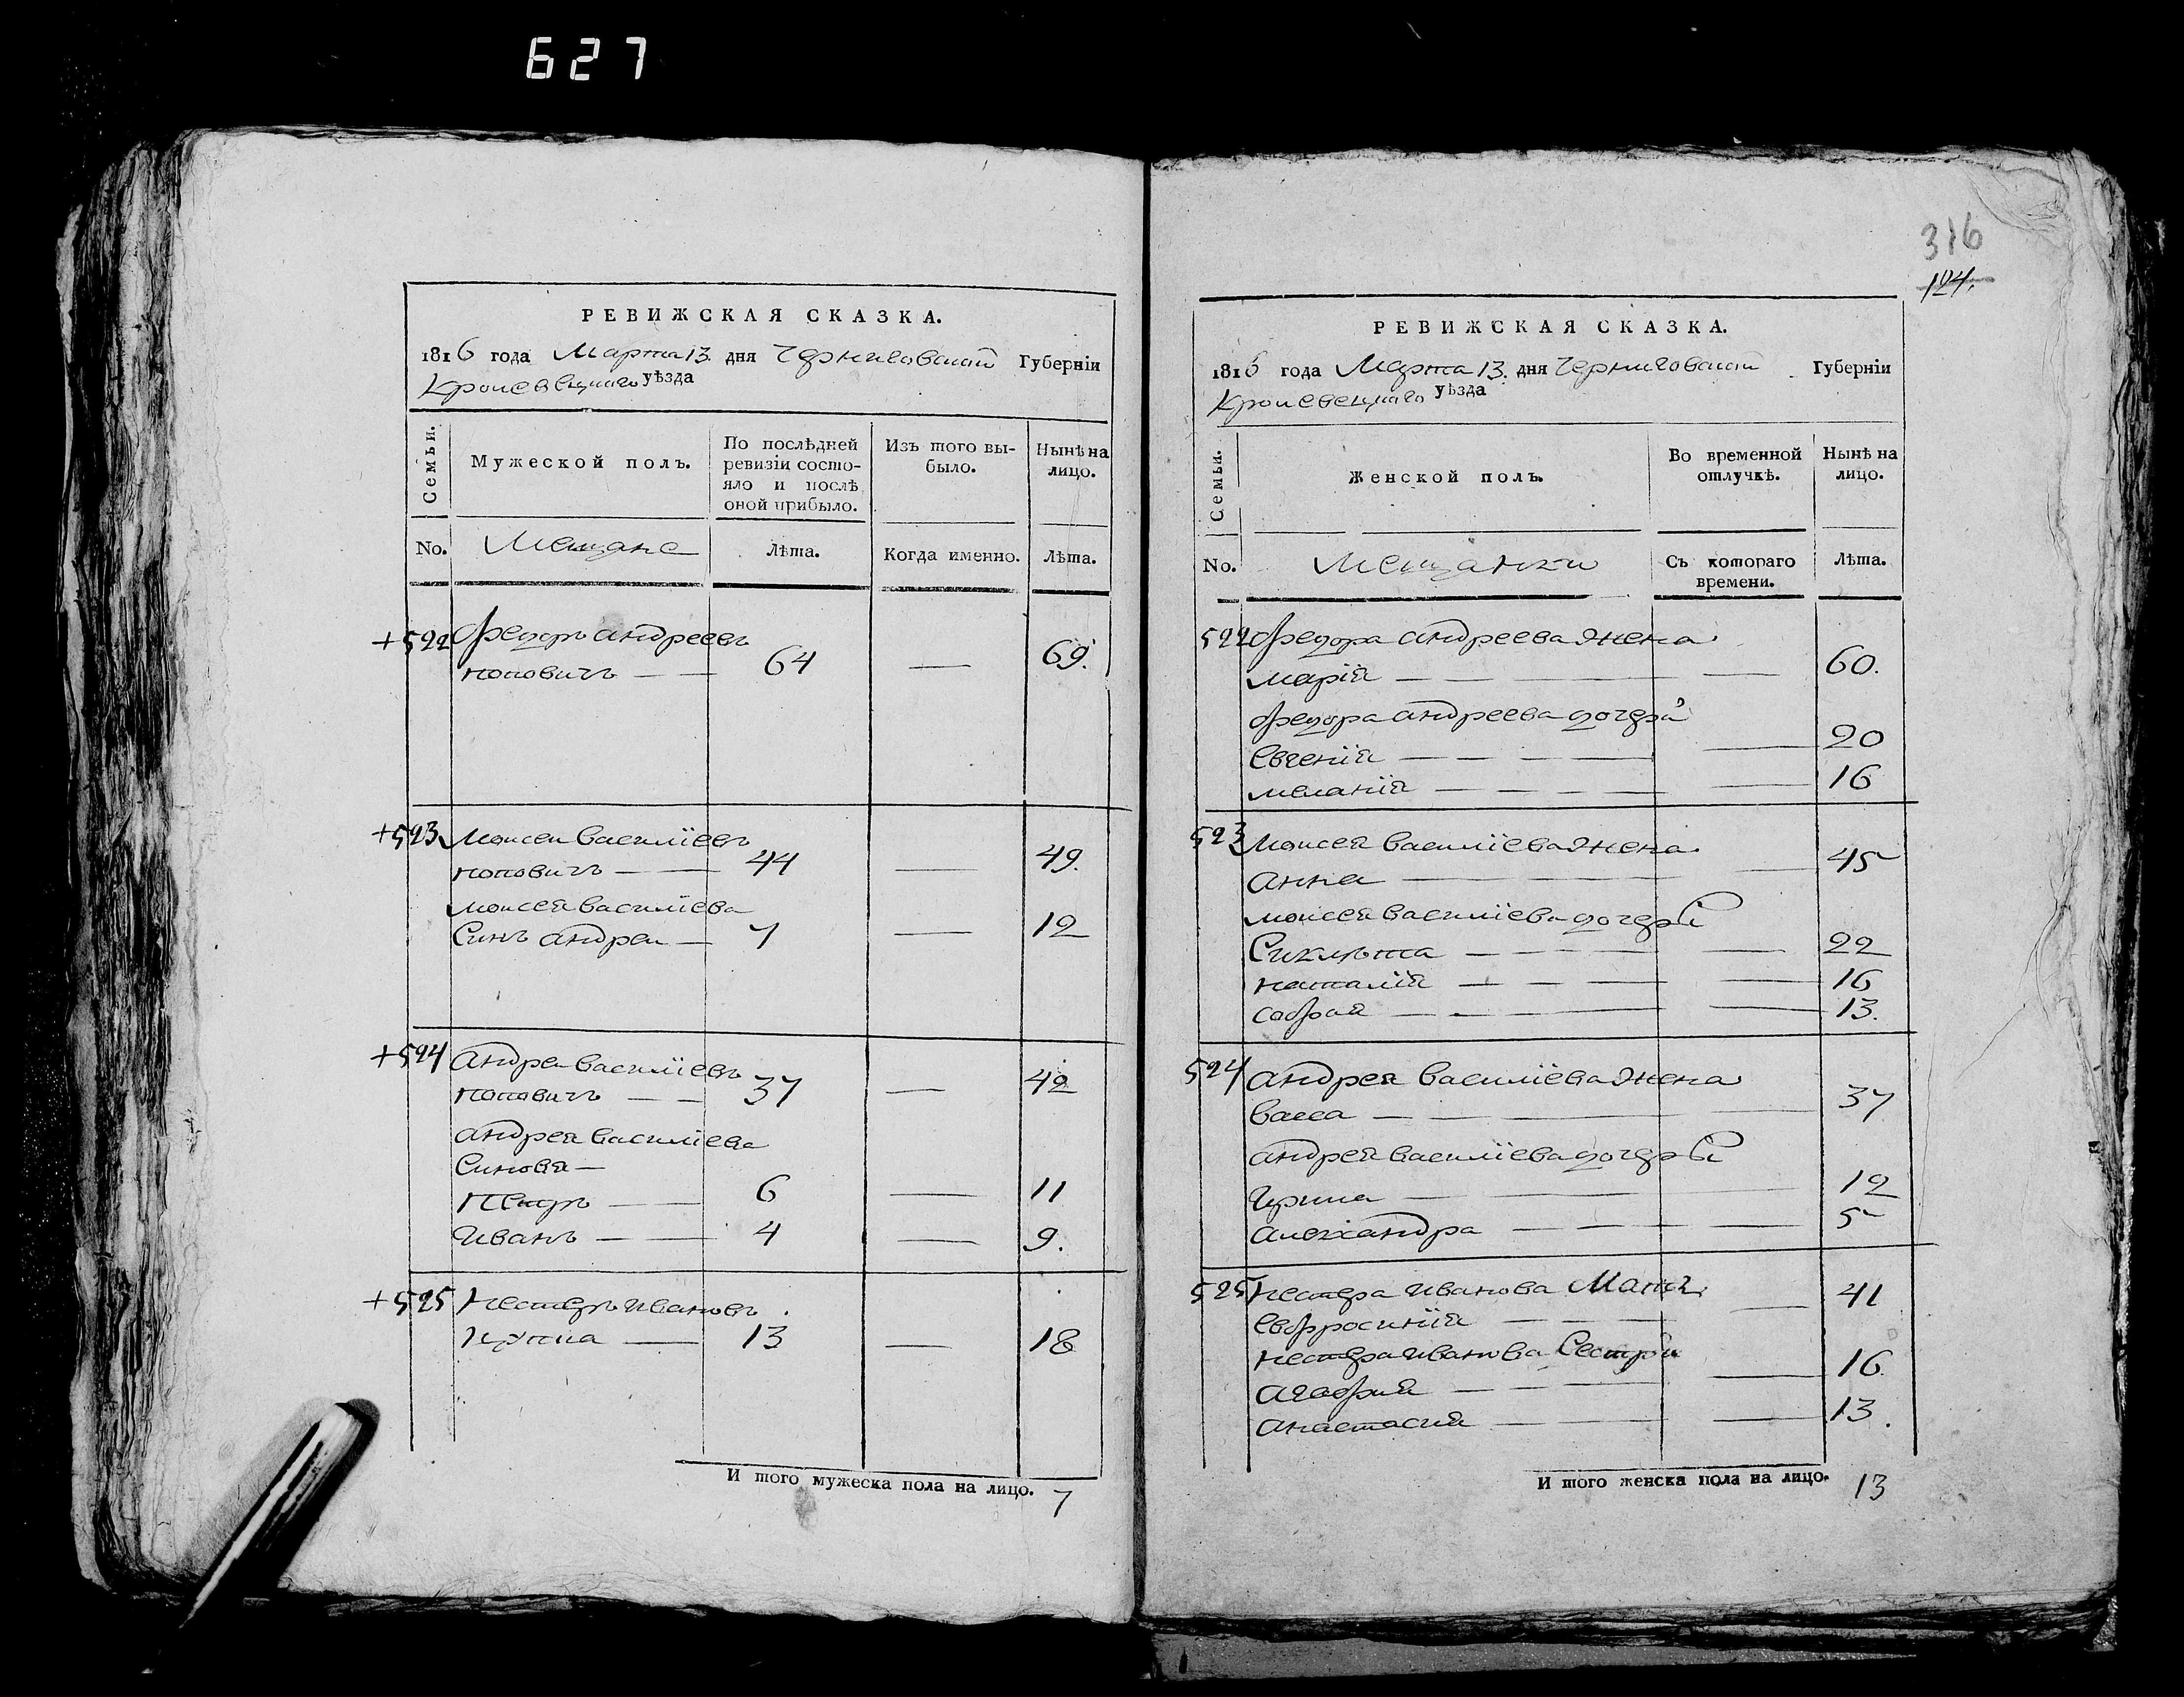 627
РЕВИЖСКАЯ СКАЗКА.
1816 года Марта 13. дня Черниговской Губерніи
Кролевецкаго уѣзда
Семьи.
Мужеской полъ.
По послѣдней
ревизіи состо-
яло и послѣ
оной прибыло.
Изъ того вы-
было.
Нынѣ на
лицо.
No.
Мещане
Лѣта.
Когда именно.
Лѣта.
+522 Федоръ андреевъ
поповичъ — — 64 — 69.
+523 Моисеи василіевъ
поповичъ — — 44 — 49.
моисея василіева
Синъ андреи — 7 — 12
+524 андреи василіевъ
поповичъ — — 37 — 42
андрея василіева
Синовя —
петръ — 6 — 11
Иванъ — — 4 — 9.
+525 Нестеръ ивановъ
— 13 — 18
И того мужеска пола на лицо. 7
316
124.
РЕВИЖСКАЯ СКАЗКА.
1816 года Марта 13. дня Черниговской Губерніи
Кролевецкаго уѣзда
Семьи.
Женской полъ.
Во временной
отлучкѣ.
Нынѣ на
лицо.
No.
Мещанки
Съ котораго
времени.
Лѣта.
522 Федора андреева жена
марія — — — — 60.
Федора андреева дочери
Евгенія — — — — 20
меланія — — — — 16
523 Моисея василіева жена
анна — — — 45
моисея василіева дочери
Сиклѣта — — — — 22
наталія — — — — 16
софия — — — — 13.
524 андрея василіева жена
васса — — — 37
андрея василіева дочери
Ирина — — — 12
александра — — — — 5
525 Нестера иванова Мать
Евфросинія — — — — 41
нестера иванова Сестри
агафия — — — — 16.
анастасия — — — 13.
И того женска пола на лицо. 13